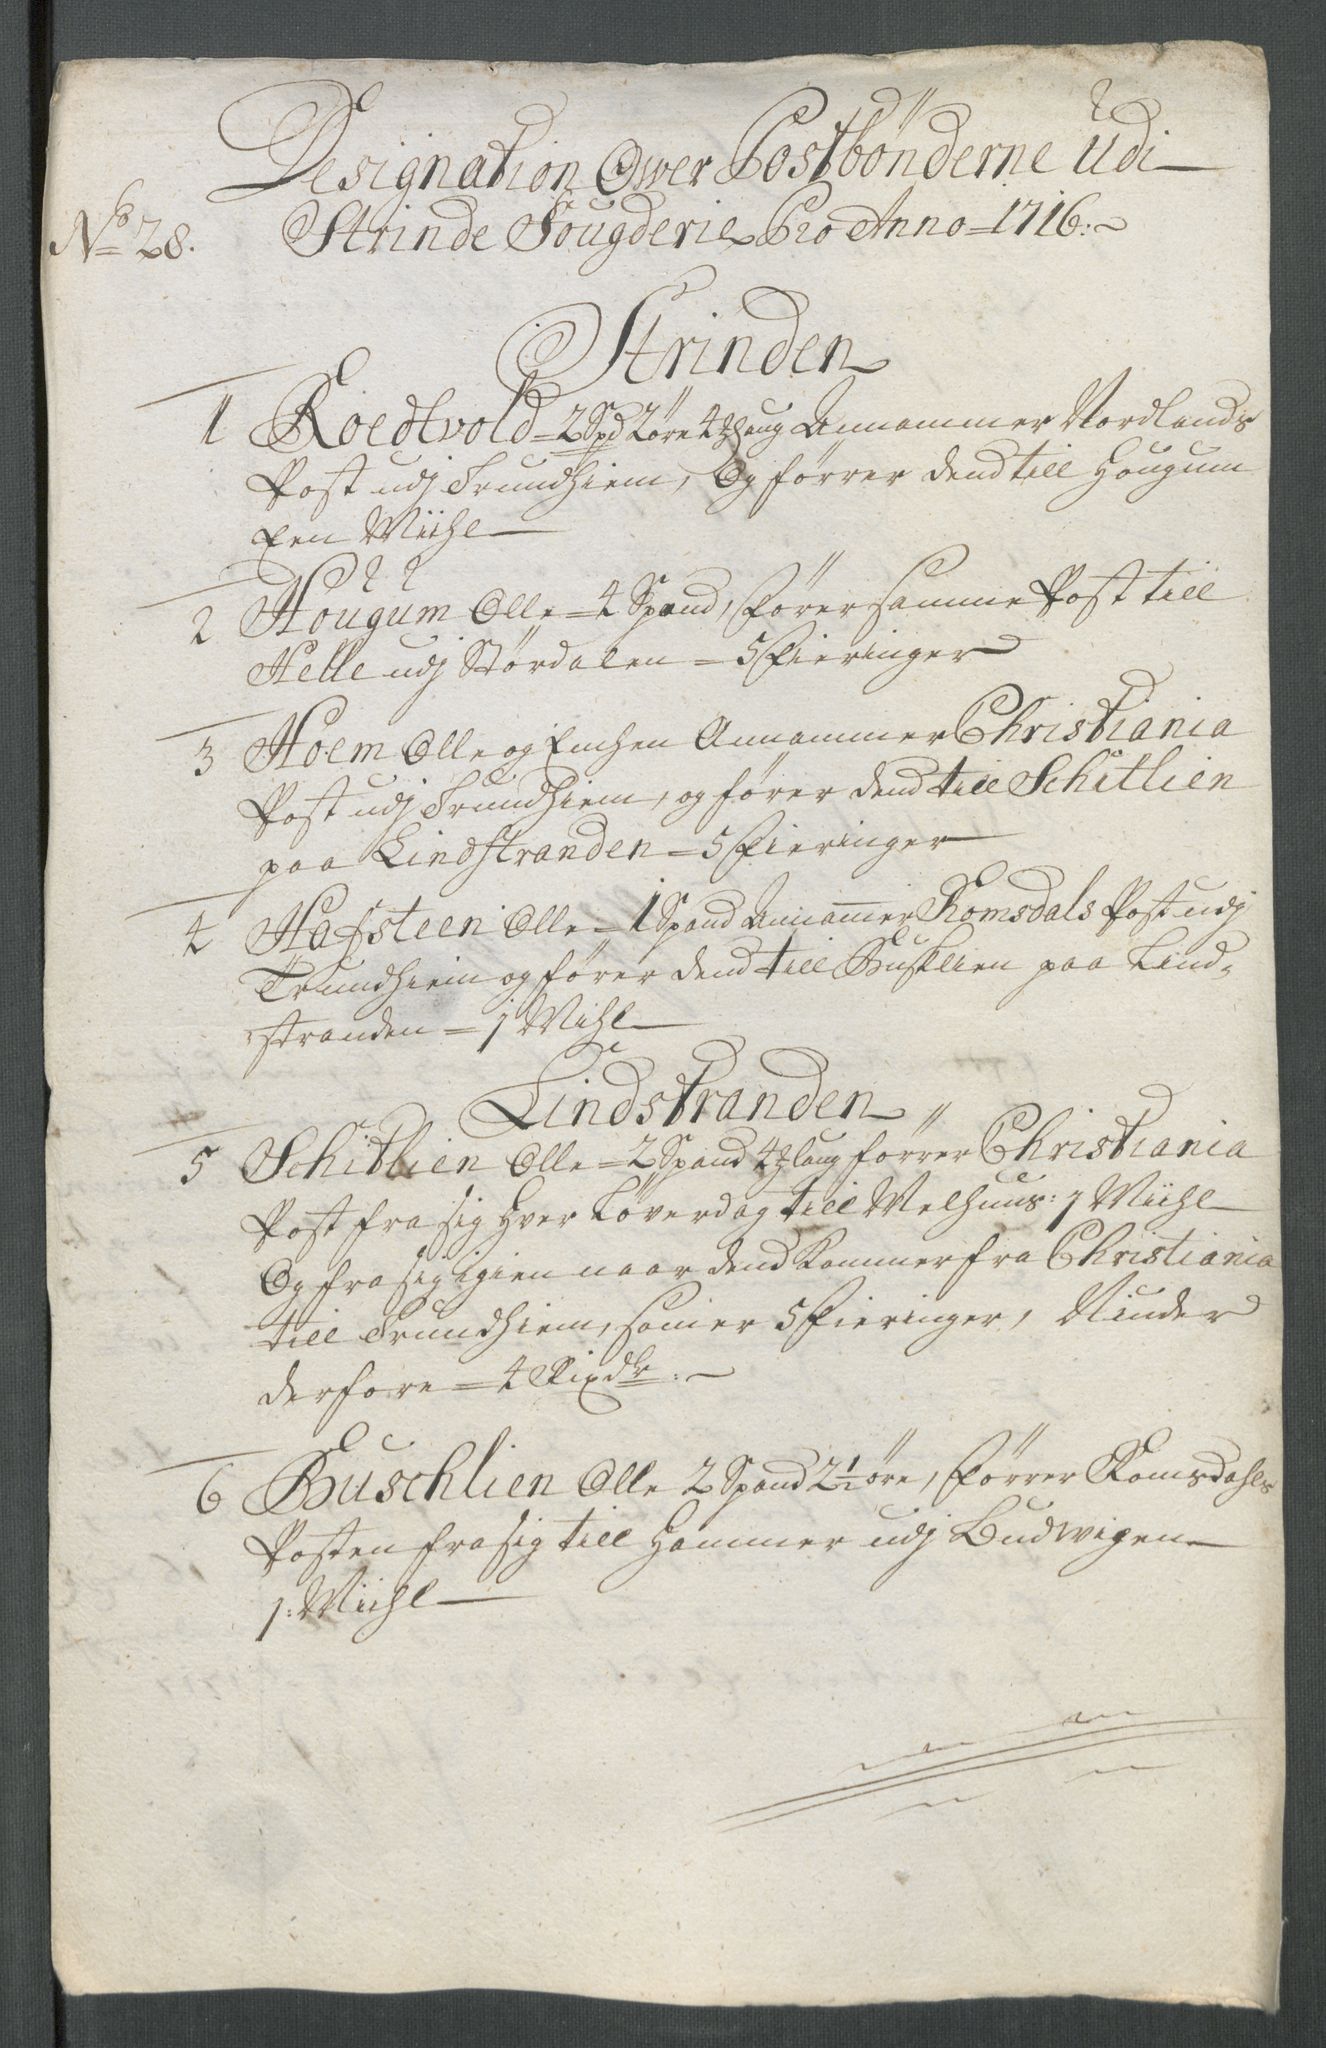 Designation Ower Postbönderne Udi
No 28. Strinde Fougderie Pro Anno = 1716:
Strinden
1 Roedtvold = 2 Spd 2 öre 4½ Laug Annammer Nordlands
Post udj Trundhiem, Og förrer dend till Hougum
Een Miihl
2 Hougum Olle = 4 Spand, Förer samme Post till
Helle udj Stördalen = 5 Fieringer
3 Hoem Olle og Enchen Annammer Christiania
Post udj Trundhiem, og förer dend till Schitlien
paa Lindstranden = 5 Fieringer
4 Hafsteen Olle = 1 Spand Annamer Romsdals Post udj
Trundhiem og förer dend till Busklien paa Lind-
stranden = 1 Mihl
Lindstranden
5 Schitlien Olle = 2 Spand 4½ laug förrer Christiania
Post fra sig hver Löverdag till Melhuus: 1 Miihl
Og fra sig igien naar dend kommer fra Christiania
till Trundhiem, som er 5 Fieringer, Niuder
derfore = 4 Rixdlr:
6 Buschlien Olle 2 Spand 2½ öre, Förrer Romsdahls
Posten fra sig till Hammer udj Budwigen
1: Miihl